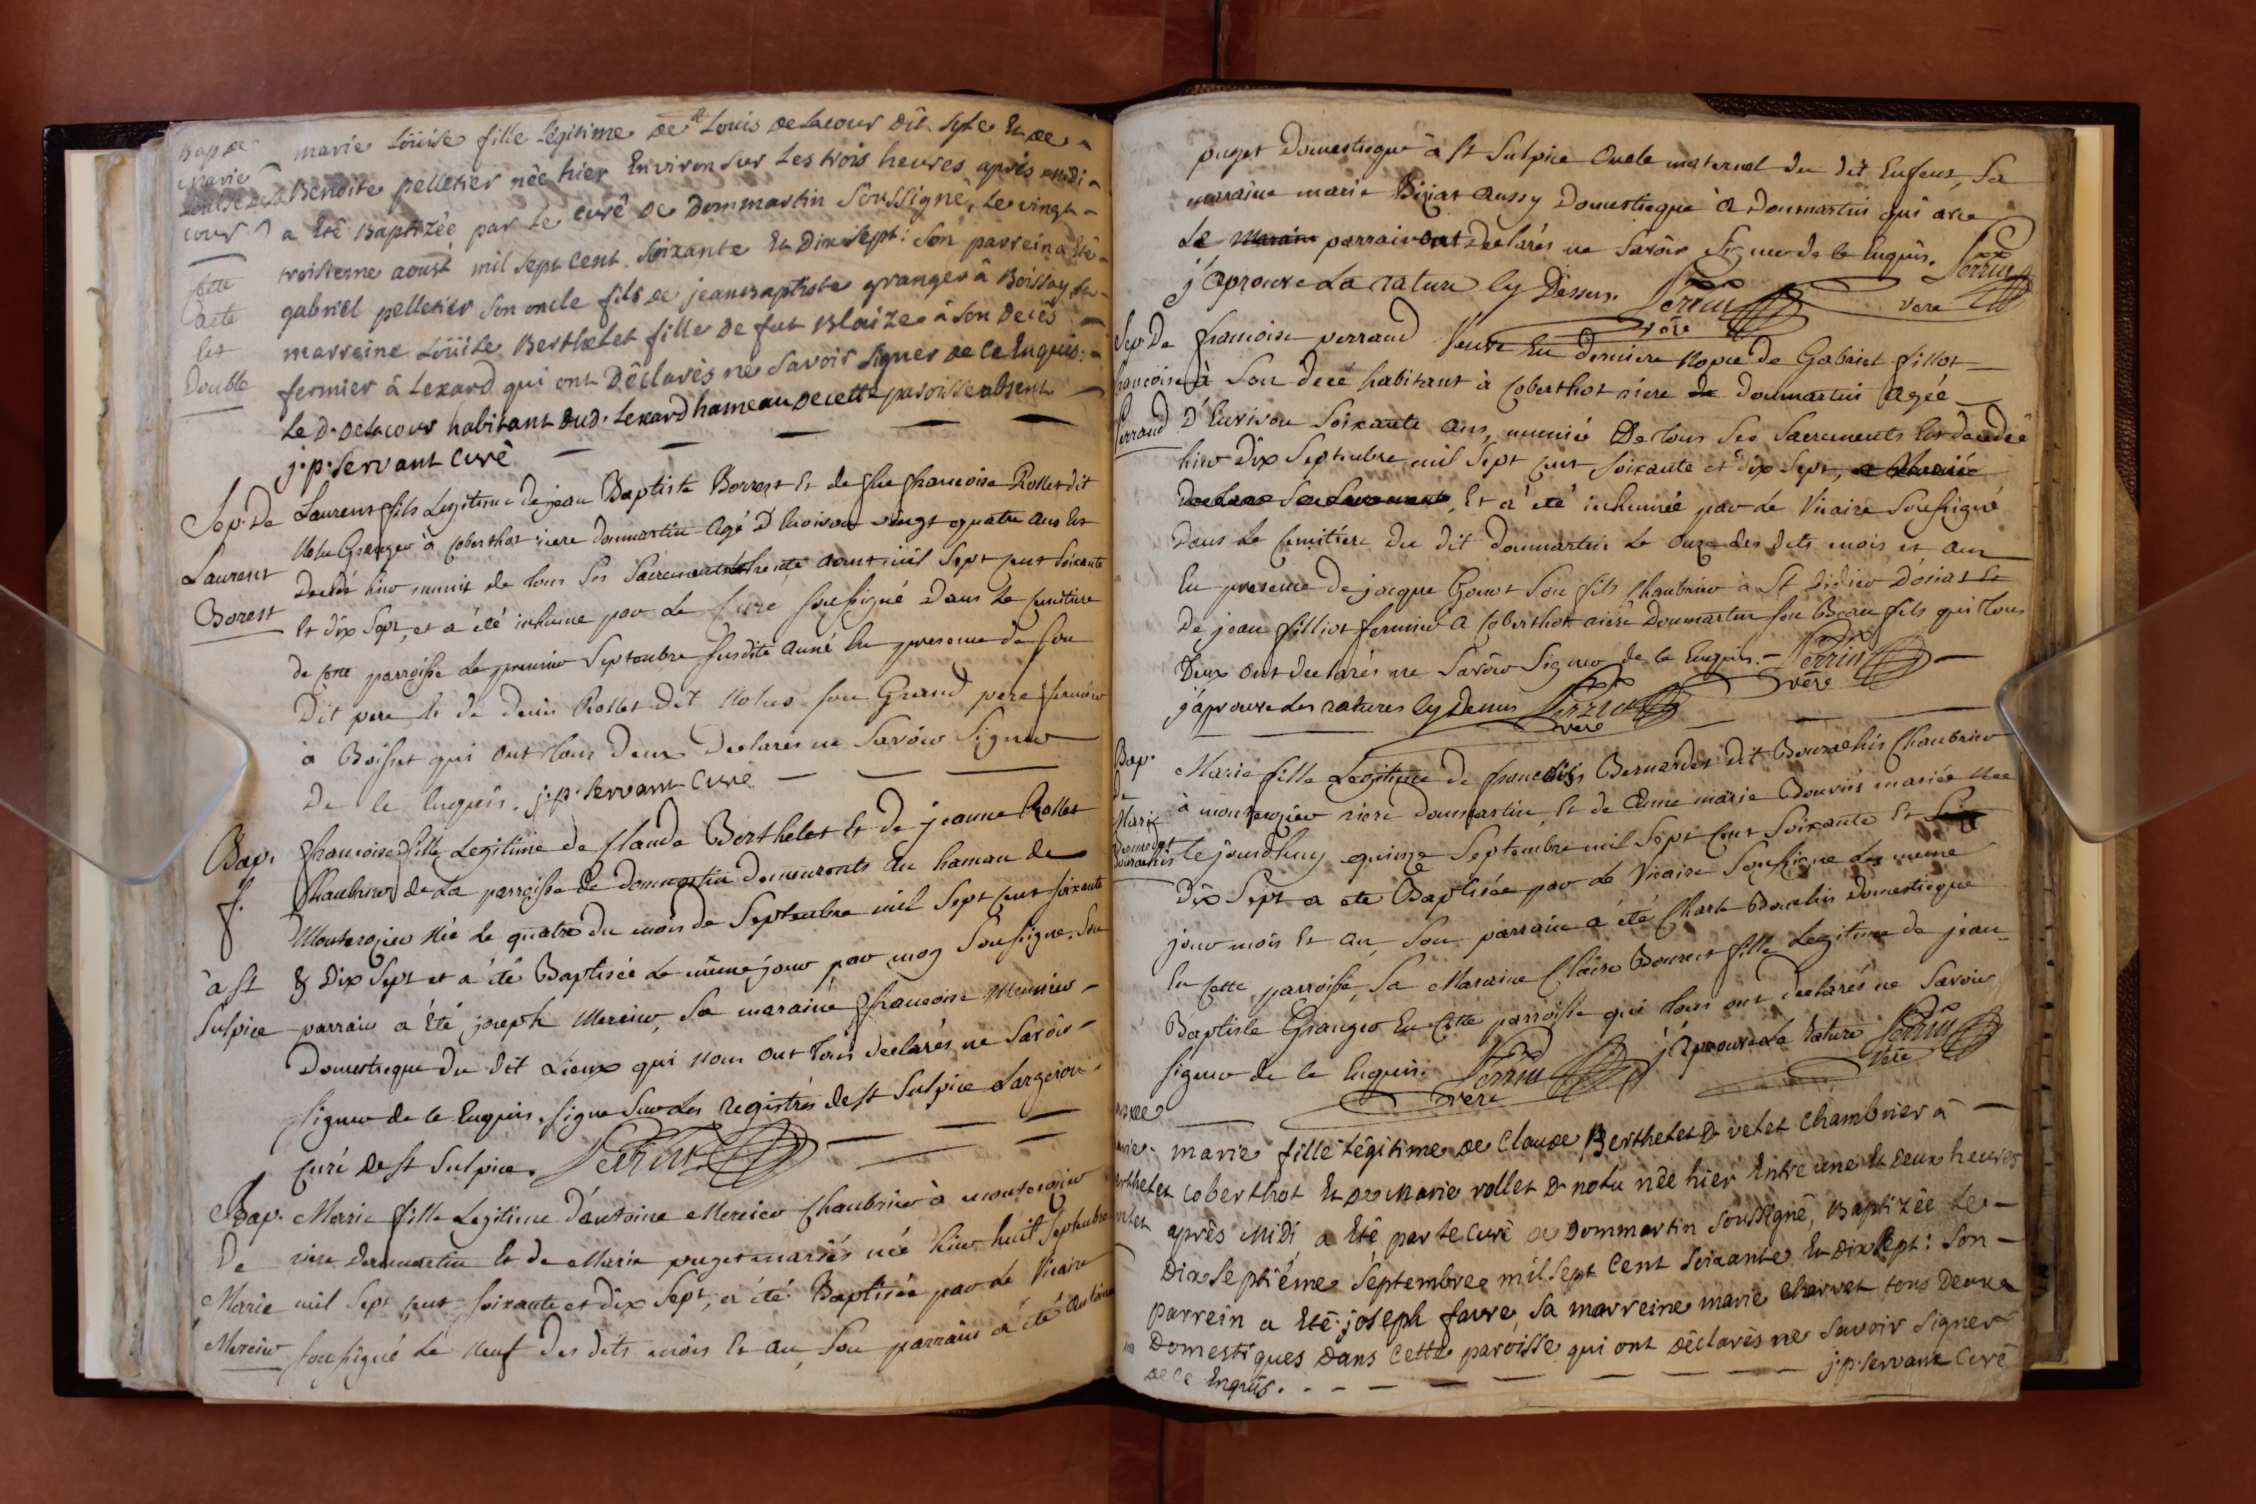 Bap. de
Marie
Louise
cour
cette
acte
est
Double
marie Loüise fille légitime de Louis delacour dit syle Et de
Benoite pelletier née hier Environ sur Les trois heures après midi
a Eté Baptizée par Le curé de Dommartin soussigné, Le vingt
troisieme aoust mil sept cent soixante Et Dix sept: son parrein a Eté
gabriel pelletier son oncle fils de jean Baptiste granger à Boissay, sa
marreine Loüise Berthelet fille de fut Blaize à son decès
fermier à Lexard qui ont Déclarés ne savoir signer de ce Enquis:
Le Dt. Delacour habitant dud. Lexard hameau de cette paroisse absent
j. p. servant curé
Sep. De
Laurent
Borest
Laurent fils Legitime de jean Baptiste Borrest Et de fue francoise Rollet dit
Granger à Coberthot riere Donmartin Agé D'Environ vingt quatre ans Est
Decedé hier munit de tous ses Sacrements trente aoust mil Sept cent soixante
Et dix sept, et a été inhumé par Le Curé soussigné Dans Le cimitiere
de cette parroisse Le premier Septembre susdite anné En presence de son
Dit pere Et de Denis Rollet Dit Nolus son Grand pere fermier
à Boisset qui ont tous Deux Declarés ne Savoir Signer
De ce Enquis. j. p. servant curé
Bap.
f.
à st
Sulpice
francoise fille Legitime de Claude Berthelet Et de jeanne Rollet
Chambrier de La parroisse de Donmartin Demeurants au hamau de
Monterogier née Le quatre du mois de Septembre mil Sept cent soixante
& Dix Sept et a été Baptisée Le même jour par moy soussigné. Son
parrain a Eté joseph Mercier, Sa maraine francoise Meunier
Domestique du dit Lieux qui nous ont tous declarés ne Savoir
signer de ce Enquis. signe sur Les registres de st Sulpice Largeron
Curé de st Sulpice. Perrin
Bap.
De
Marie
Mercier
Marie fille Legitime d'antoine Mercier Chambrier à monterogier
riere Donmartin Et de Marie puget mariés née hier huit Septembre
mil Sept cent soixante et dix Sept, a été Baptisée par Le Vicaire
soussigné Le neuf des dits mois Et an, Son parrain a été antoine
puget Domestique à st Sulpice Oncle maternel du dit Enfent, Sa
marraine marie Bizat aussy Domestique à Donmartin qui avec
Le parrain ont Declarés ne Savoir Signer de ce Enquis. Perrin
vere
j'aprouve La rature cy Dessus. Perrin
vere
Sep. De
francoise
Perraud
francoise perraud Veuve En derniere Nopce de Gabriel fillot
à Son decé habitant à Coberthot riere Donmartin Agée
D'Environ Soixante ans, munié De tous ses Sacrements Est decedée
hier Dix Septembre mil Sept cent soixante et dix Sept,
Et a été inhumée par Le Vicaire Soussigné
Dans Le Cimitiere du dit Donmartin Le Onze des dits mois et an
En presence de jacque Gonot Son fils Chambrier à St Didier D'osiat Et
De jean filliot fermier à Coberthot riere Donmartin son Beau fils qui tous
Deux ont declarés ne Savoir Signer de ce Enquis. Perrin
vere
j'aprouve Les ratures cy Dessus Perrin
vere
Bap.
De
Marie
Bernardet
Bourachis
Marie fille Legitime de francois Bernardet dit Bourachis Chambrier
à monterogier riere Donmartin, Et de Anne marie Bouviés mariés née
Le jourdhuy quinze Septembre mil Sept cent Soixante Et
Dix Sept a été Baptisée par Le Vicaire Soussigné Les meme
jour mois Et an, Son parrain a été Charle Bouchis Domestique
En cette parroisse, Sa Maraine Claire Bourest fille Legitime de jean
Baptiste Granger En Cette parroisse qui tous ont declarés ne Savoir
signer de ce Enquis. Perrin
vere
j'aprouve La rature Perrin
vere
marie fille Légitime de Claude Berthelet Dt velet chambrier à
coberthot Et de Marie rollet Dt nolu née hier Entre une Et deux heures
après Midi a Eté par Le curé de Dommartin soussigné, Baptizée Le
Dix septiéme septembre mil sept cent soixante Et Dix sept: son
parrein a Eté joseph favre, sa marreine marie charvet tous Deux
Domestiques Dans cette paroisse qui ont déclarés ne savoir signer
de ce Enquis. j. p. servant curé